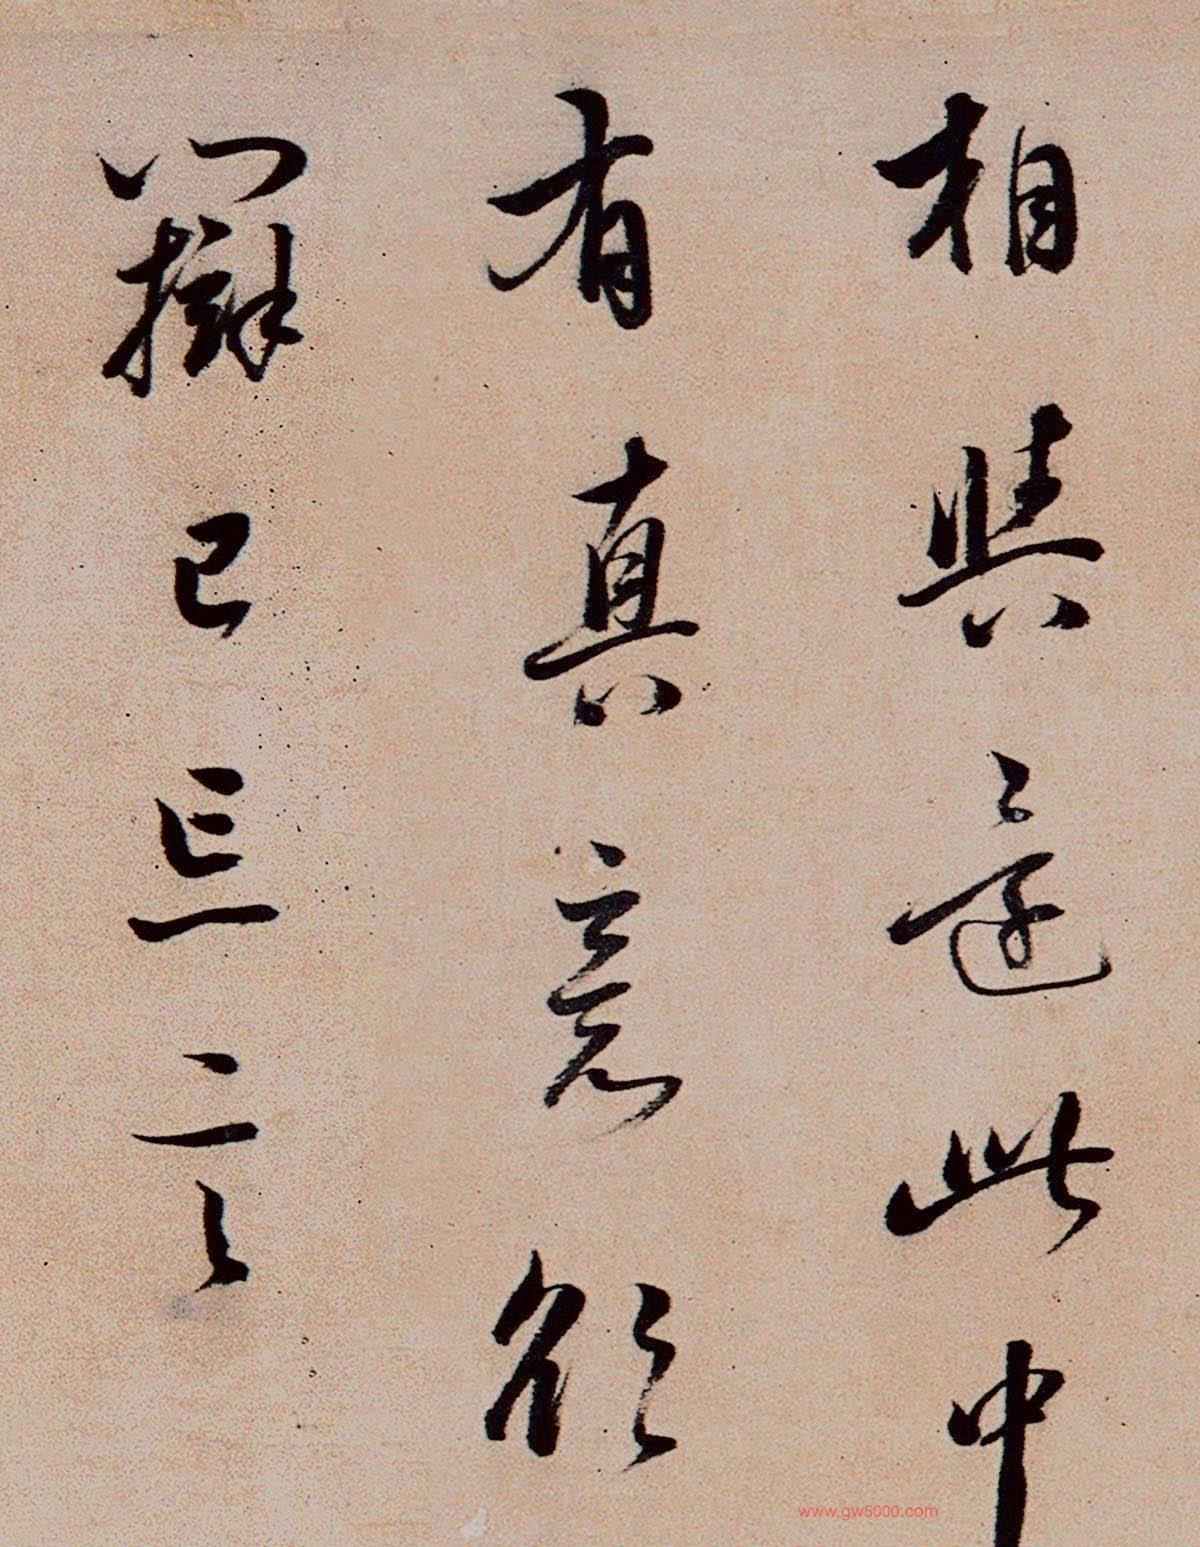 相與還此中
有真意欲
辯已忘言
www.gw5000.com